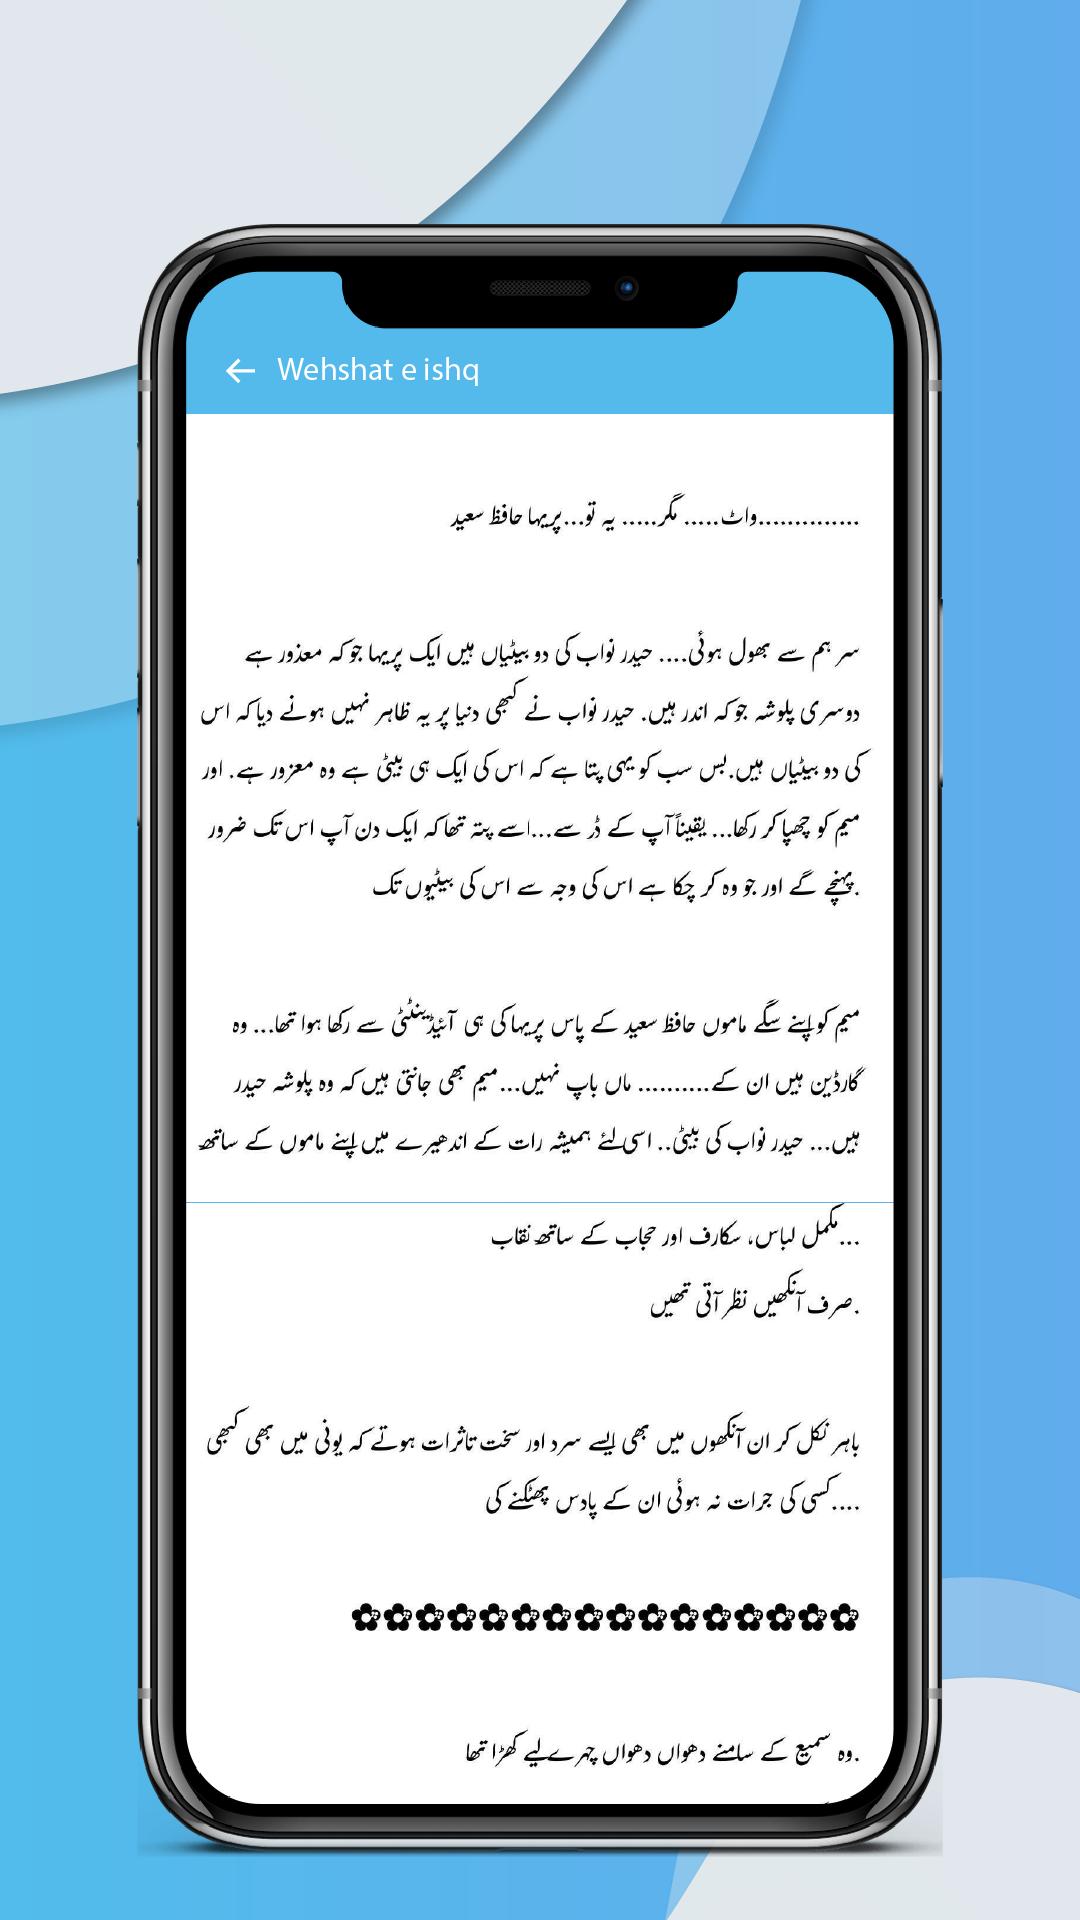 Wehshat e ishq
..............واٹ..... مگر..... یہ تو...پریہا حافظ سعید
سر ہم سے بھول ہوئی.... حیدر نواب کی دو بیٹیاں ہیں ایک پریہا جو کہ معذور ہے
دوسری پلوشہ جو کہ اندر ہیں. حیدر نواب نے کبھی دنیا پر یہ ظاہر نہیں ہونے دیا کہ اس
کی دو بیٹیاں ہیں.بس سب کو یہی پتا ہے کہ اس کی ایک ہی بیٹی ہے وہ معزور ہے. اور
میم کو چھپا کر رکھا... یقیناً آپ کے ڈر سے...اسے پتہ تھا کہ ایک دن آپ اس تک ضرور
.پہنچے گے اور جو وہ کر چکا ہے اس کی وجہ سے اس کی بیٹیوں تک
میم کو اپنے سگے ماموں حافظ سعید کے پاس پریہا کی ہی آئیڈینٹٹی سے رکھا ہوا تھا... وہ
گارڈین ہیں ان کے.......... ماں باپ نہیں...میم بھی جانتی ہیں کہ وہ پلوشہ حیدر
ہیں... حیدر نواب کی بیٹی.. اسی لئے ہمیشہ رات کے اندھیرے میں اپنے ماموں کے ساتھ
...مکمل لباس، سکارف اور حجاب کے ساتھ نقاب
.صرف آنکھیں نظر آتی تھیں
باہر نکل کر ان آنکھوں میں بھی ایسے سرد اور سخت تاثرات ہوتے کہ یونی میں بھی کبھی
....کسی کی جرات نہ ہوئی ان کے پادس پھٹکنے کی
✿✿✿✿✿✿✿✿✿✿✿✿✿✿✿✿
.وہ سمیع کے سامنے دھواں دھواں چہرے لیے کھڑا تھا